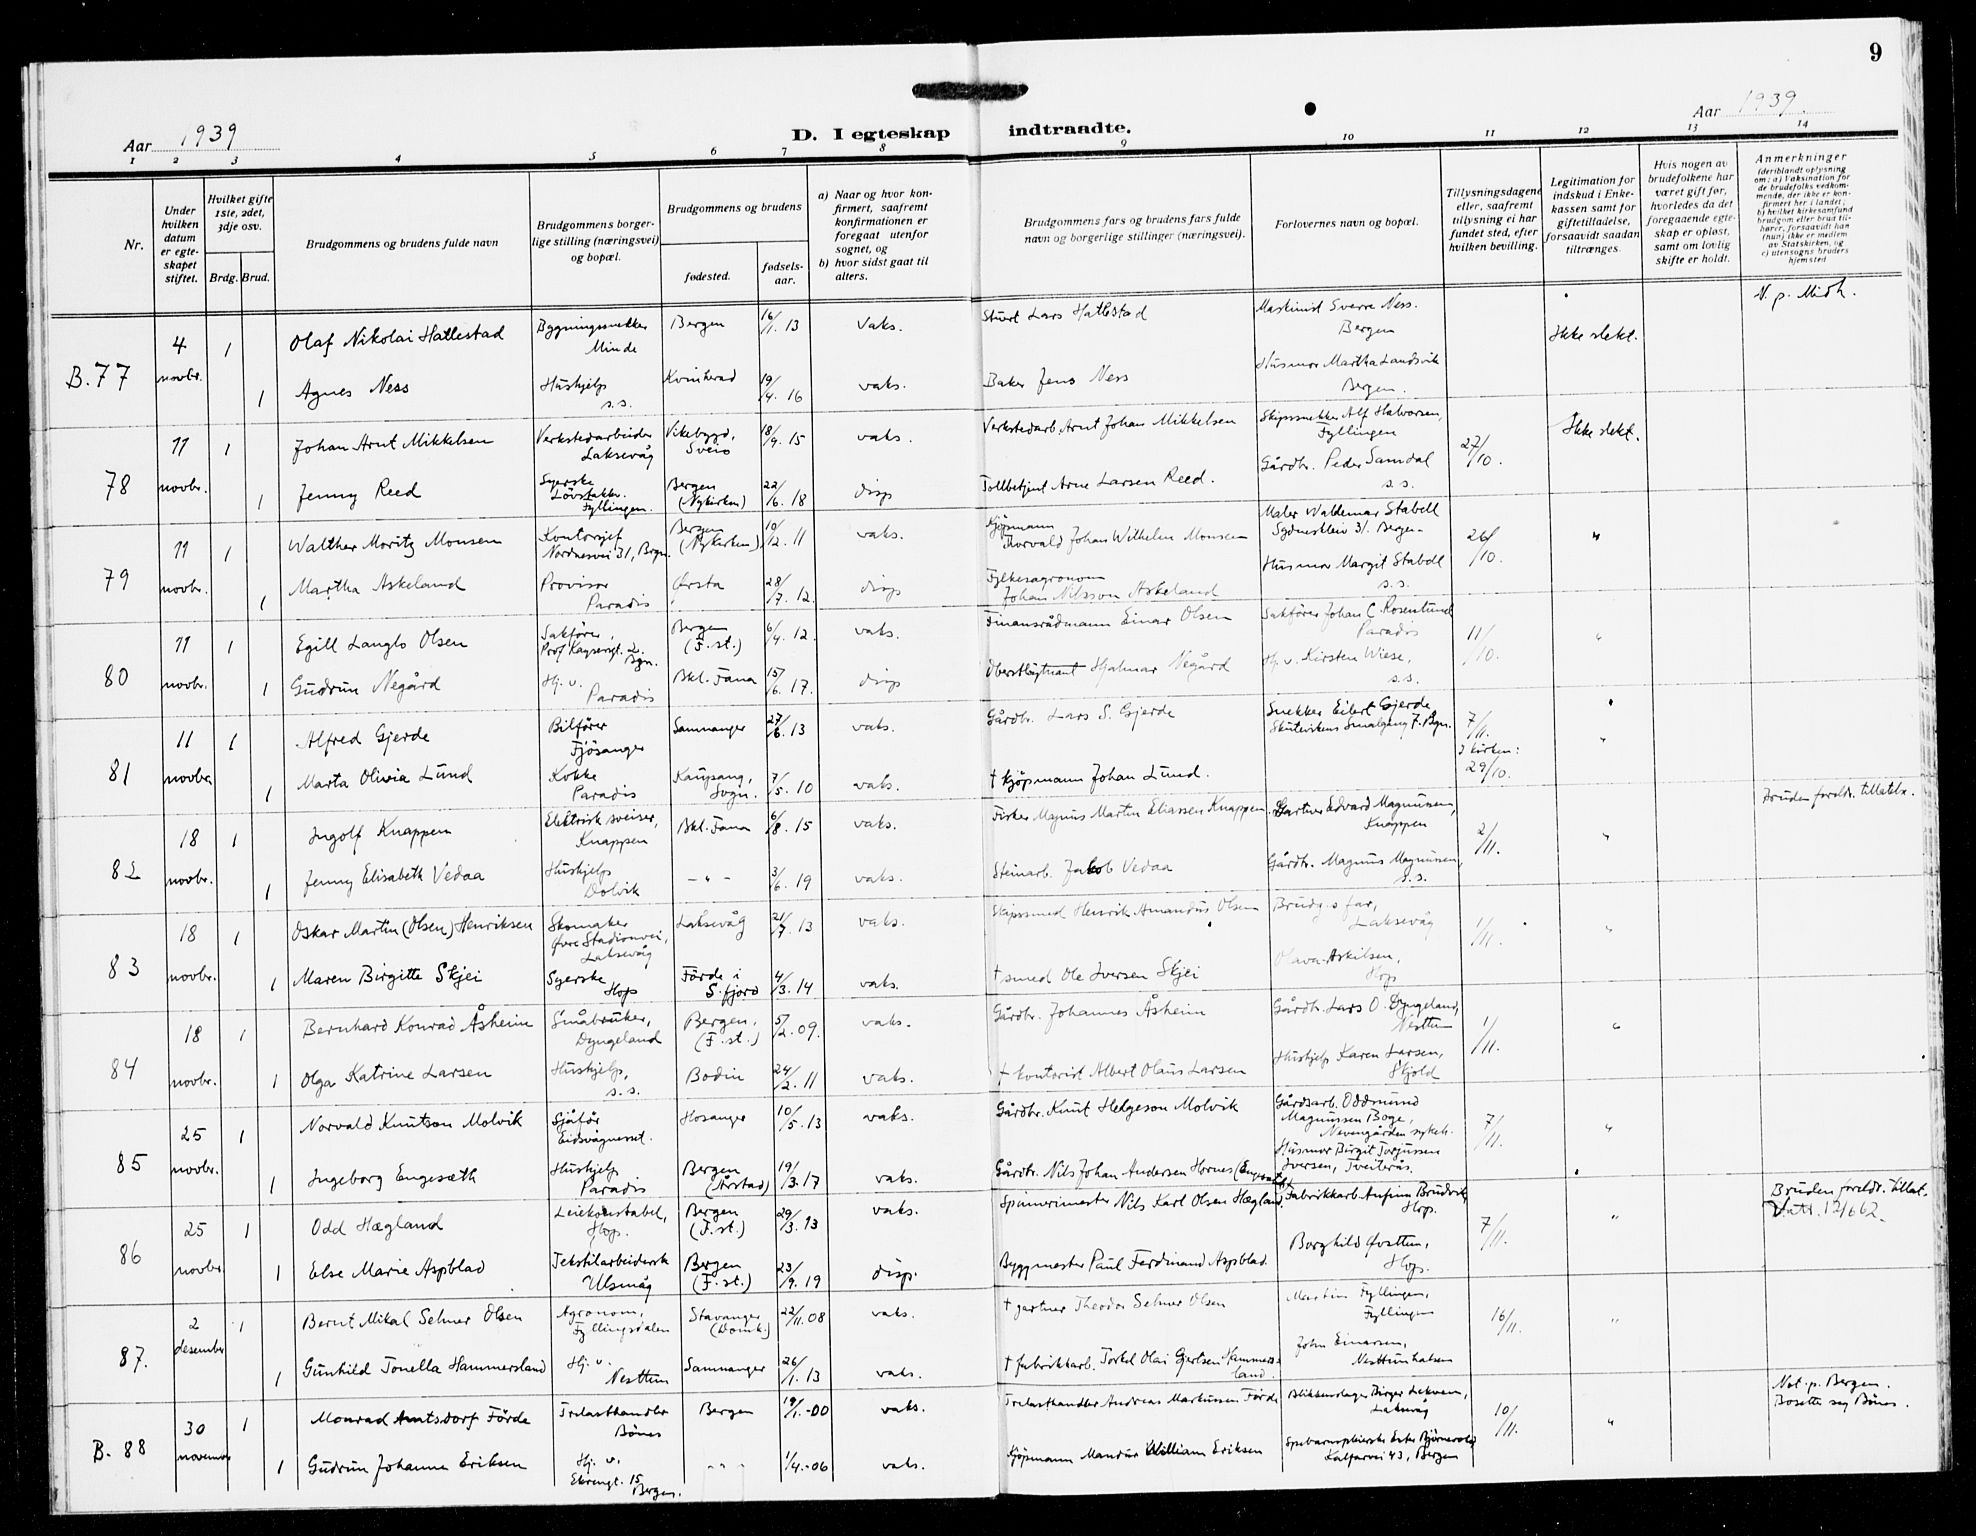 9
Aar 1939
D. I egteskap indtraadte.
Aar 1939.
1 2 3 4 5 6 7 8 9 10 11 12 13 14
Nr.
Under hvilken datum er egteskapet stiftet.
Hvilket gifte 1ste, 2det, 3dje osv.
Brdg. Brud.
Brudgommens og brudens fulde navn
Brudgommens borgerlige stilling (næringsvei) og bopæl.
Brudgommens og brudens
fødested.
fødselsaar.
a) Naar og hvor konfirmert, saafremt konfirmationen er foregaat utenfor sognet, og
b) hvor sidst gaat til alters.
Brudgommens fars og brudens fars fulde navn og borgerlige stillinger (næringsvei).
Forlovernes navn og bopæl.
Tillysningsdagene eller, saafremt tillysning ei har fundet sted, efter hvilken bevilling.
Legitimation for indskud i Enkekassen samt for giftetilladelse, forsaavidt saadan tiltrænges.
Hvis nogen av brudefolkene har været gift før, hvorledes da det foregaaende egteskap er opløst, samt om lovlig skifte er holdt.
Anmerkninger
(deriblandt oplysning om: a) Vaksination for de brudefolks vedkommende, der ikke er konfirmert her i landet; b) hvilket kirkesamfund brudgom eller brud tilhører, forsaavidt han (hun) ikke er medlem av Statskirken, og c) utensogns bruders hjemsted
B.77 4 novbr. 1 Olaf Nikolai Hallestad Bygningssnekker Minde Bergen 16/11. 13 Vaks. Stuert Lars Hallestad Maskinist Sverre Ness. Bergen Ikke slekt. V. p. Midh.
1 Agnes Ness Hushjelp s.s. Kvinherad 19/4. 16 vaks. Baker Jens Ness Husmor Martha Landsvik Bergen.
78 11 novbr. 1 Johan Arnt Mikkelsen Verkstedarbeider Laksevåg Vikebygd, Sveio 18/9. 15 vaks. Verkstedarb. Arnt Johan Mikkelsen Skipssnekker Alf Halvorsen, Fyllingen 27/10. Ikke slekt.
1 Jenny Reed Syerske Løvstakk. Fyllingen. Bergen (Nykirken) 22/6. 18 disp Tollbetjent Arne Larsen Reed. Gårdbr. Peder Samdal s.s.
79 11 novbr. 1 Walther Moritz Monsen Kontorsjef Nordnesvei 31, Brgn. Bergen (Nykirken) 10/12. 11 vaks. Kjøpmann Thorvald Johan Wilhelm Monsen Maler Waldemar Stabell Sydneskleiv 31. Bergen 26/10. "
1 Martha Askeland Provisor Paradis Ørsta 28/7. 12. disp Fylkesagronom Johan Nilsson Askeland Husmor Margit Stabell s.s.
80 11 novbr. 1 Egill Langlo Olsen Sakfører, Prof Kaysersgt. 2. Bgn. Bergen (F.st.) 6/4. 12. vaks. Finansrådmann Einar Olsen Sakfører Johan C. Rosenlund Paradis 11/10. "
1 Gudrun Negård Hj. v. Paradis Bkl. Fana 15/6. 17. disp Oberstløytnant Hjalmar Negård Hj. v. Kirsten Wiese, s.s.
81 11 novbr 1 Alfred Gjerde Bilfører Fjøsanger Samnanger 27/6. 13 vaks. Gårdbr. Lars S. Gjerde Snekker Eilert Gjerde Skutevikens Smalgang 7. Bgn. 7/11. I kirken: 29/10. "
1 Marta Olivia Lund Kokke Paradis Kaupang, Sogn. 7/5. 10 vaks. † kjøpmann Johan Lund.
82 18 novbr. 1 Ingolf Knappen Elektrisk sveiser, Knappen Bkl. Fana 6/8. 15 vaks. Fisker Magnus Martin Eliassen Knappen. Gartner Edvard Magnussen, Knappen 2/11. " Bruden foreldr. tillatelse.
1 Jenny Elisabeth Vedaa Hushjelp Dolvik - " - 3/6. 19 vaks. Steinarb. Jakob Vedaa Gårdbr. Magnus Magnussen, s.s.
83 18 novbr. 1 Oskar Martin (Olsen) Henriksen Skomaker Øvre Stadionvei, Laksevåg Laksevåg 21/7. 13 vaks. Skipssmed Henrik Amandus Olsen Brudg.s far, Laksevåg 1/11. "
1 Maren Birgitte Skjei Syerske Hop Førde i S. fjord 4/3. 14 vaks. † smed Ole Iversen Skjei Olava Askilsen, Hop
84 18 novbr. 1 Bernhard Konrad Åsheim Småbruker, Dyngeland Bergen, (F.st.) 5/2. 09. vaks. Gårdbr. Johannes Åsheim Gårdbr. Lars O. Dyngeland, Nesttun 1/11. "
1 Olga Katrine Larsen Hushjelp, s.s. Bodin 24/2. 11 vaks. † kontorist Albert Olaus Larsen Hushjelp Karen Larsen, Skjold
85 25 novbr. 1 Norvald Knutson Molvik Sjåfør Eidsvågneset. Hosanger 10/5. 13 vaks. Gårdbr. Knut Helgeson Molvik Gårdsarb. Oddmund Magnussen Boge, Nevengården sykeh. 7/11. "
1 Ingeborg Engesæth Hushjelp Paradis Bergen (Årstad) 19/3. 17 vaks. Gårdbr. Nils Johan Andersen Hornes (Engesæth) Husmor Birgit Torjussen Iversen, Tveiterås.
86 25 novbr. 1 Odd Hægland Leiekonstabel, Hop. Bergen (F.st.) 29/3. 13 vaks. Spinnerimester Nils Karl Olsen Hægland, Fabrikkarb. Anfinn Brudvik Hop. 7/11. " Bruden foreldr. tillat. Datt. 12/6 62.
1 Else Marie Aspblad Tekstilarbeiderske Ulsmåg Bergen (F.st.) 23/9. 19 disp. Byggmester Paul Ferdinand Aspblad. Borghild Øvsttun, Hop.
87. 2 desember 1 Bernt Mikal Selmer Olsen Agronom, Fyllingsdalen Stavanger (Domk.) 22/11. 08 vaks. † gartner Theodor Selmer Olsen Martin Fyllingen, Fyllingen 16/11. "
1 Gunhild Tonella Hammersland Hj. v. Nesttun Samnanger 26/1. 13 vaks. † fabrikkarb. Torkel Olai Gjertsen Hammersland. John Einarsen, Nesttunhalsen
B. 88 30 november 1 Monrad Amtsdorf Førde Trelasthandler Bønes Bergen 19/1.-00 vaks. Trelasthandler Andreas Markussen Førde Blikkenslager Birger Lekven, Laksevåg 10/11. " Not. p. Bergen. Bosetter seg Bønes.
1 Gudrun Johanne Eriksen Hj. v. Ekrengt. 15 Bergen. " " " 1/4.-06 vaks. Kjøpmann Mandur William Eriksen Spebarnspleierske Ester Bjørnevold Kalfarvei 43, Bergen